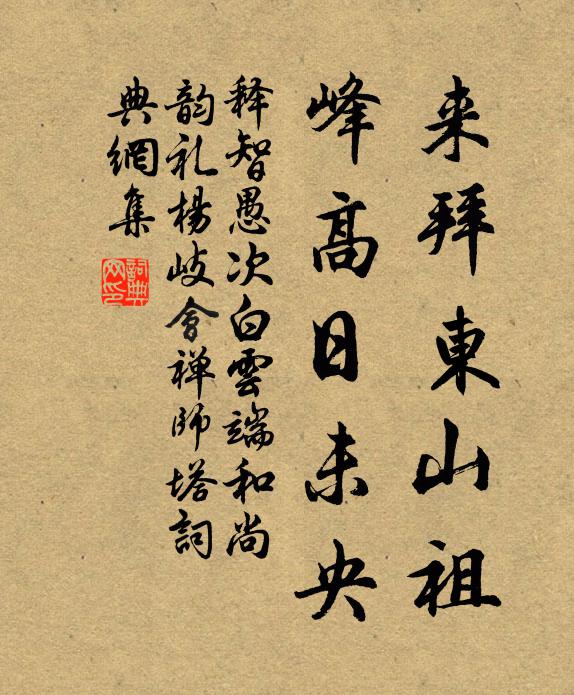 来拜東山祖
峰高日未央
释智愚次白雲端和尚
韵礼楊岐會禅師塔詞
典網集
詞典網印